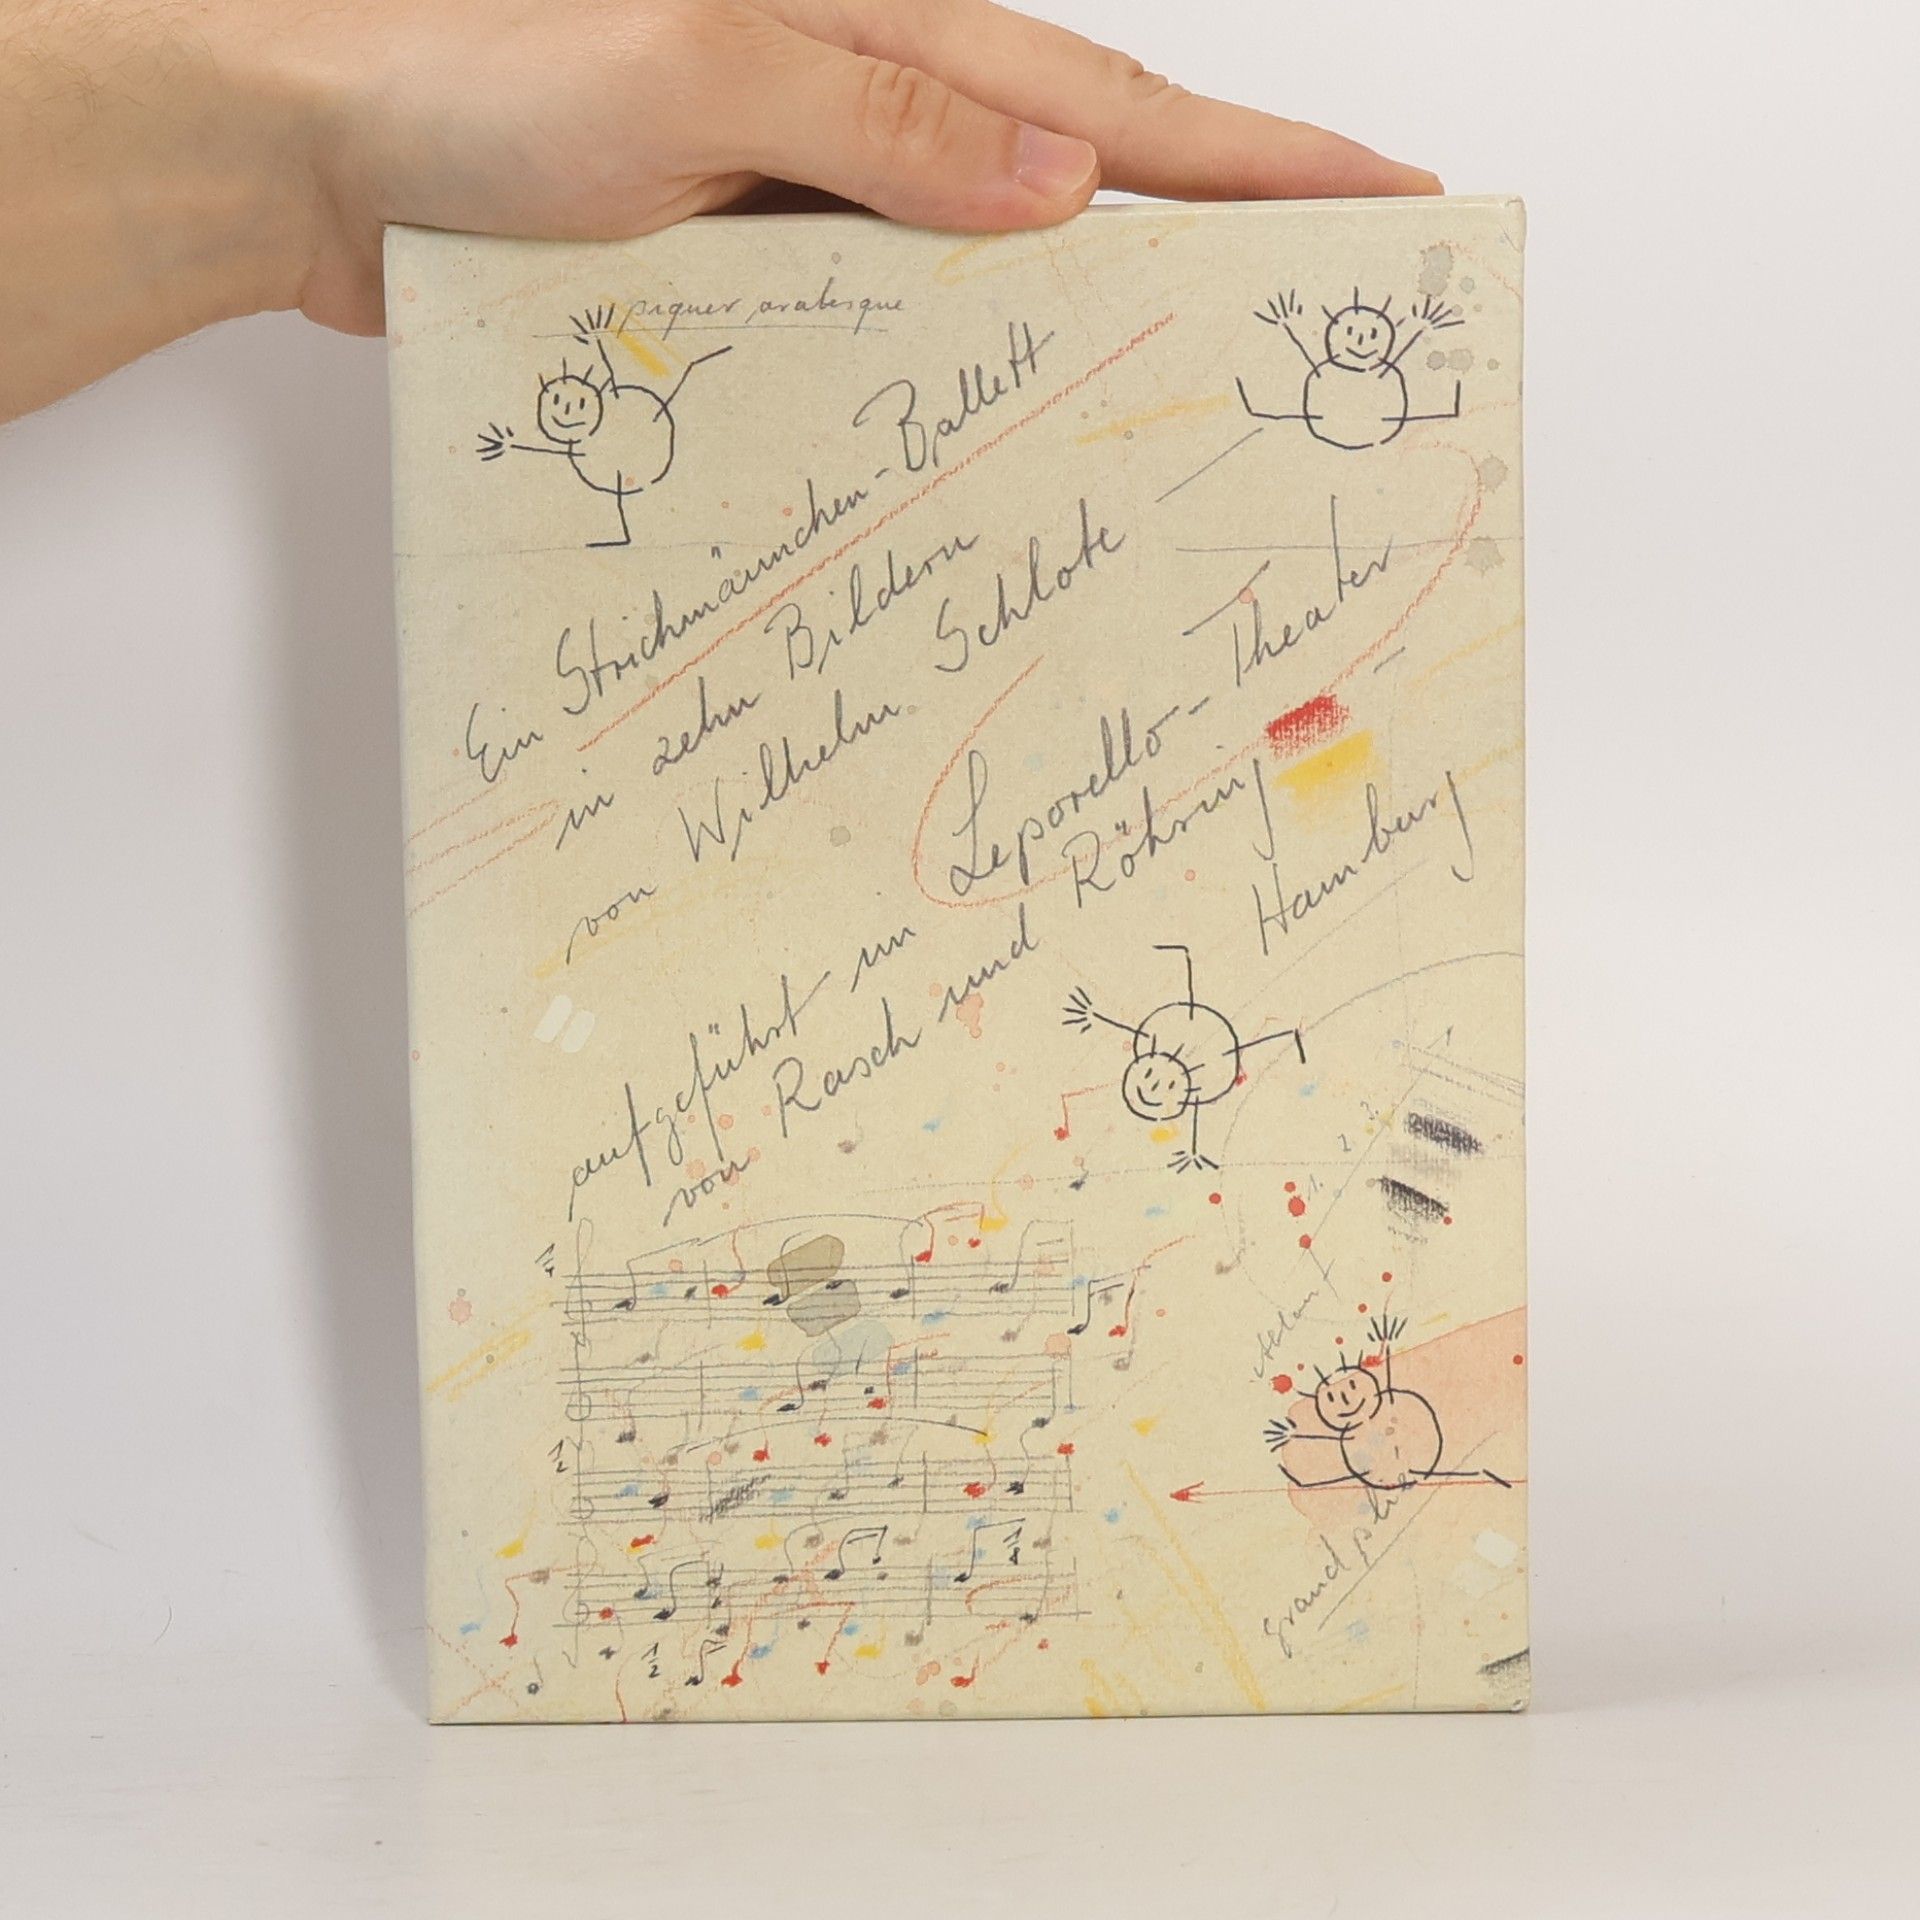 piquer arabesque
Ein Strichmännchen-Ballett
in zehn Bildern
von Wilhelm Schlote —
aufgeführt im Leporello-Theater –
von Rasch und Röhring
Hamburg
1.
2
3.
grand plié
1/2
1/2